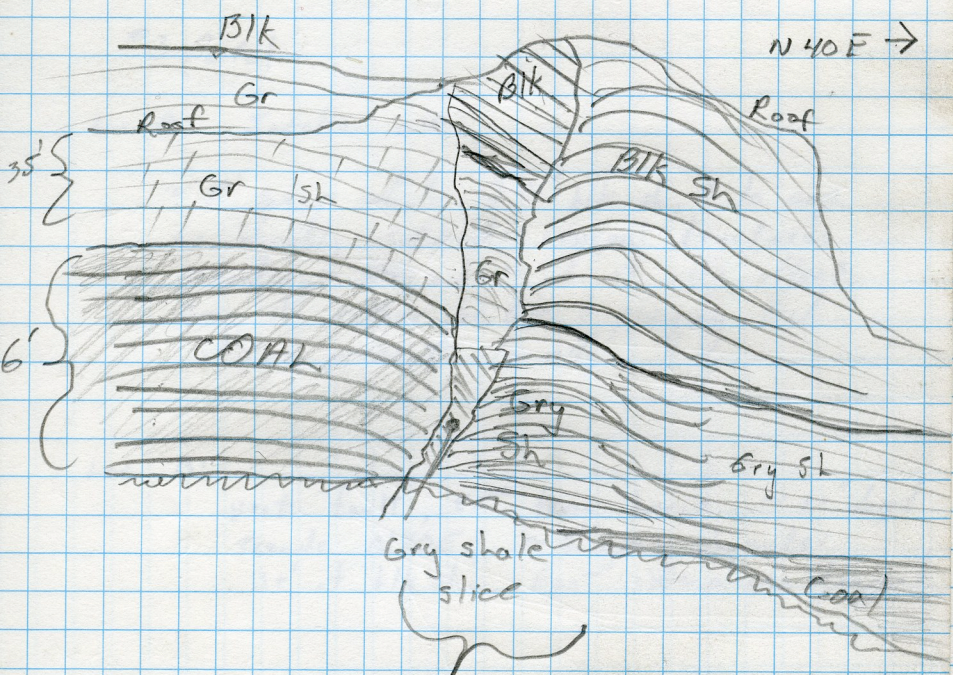 Blk
N 40 E →
Gr
Blk
Roof
Roof
35'
Blk Sh
Gr Sh
Gr
6'
COAL
Gry
Sh
Gry Sh
Gry shale
slice
Coal